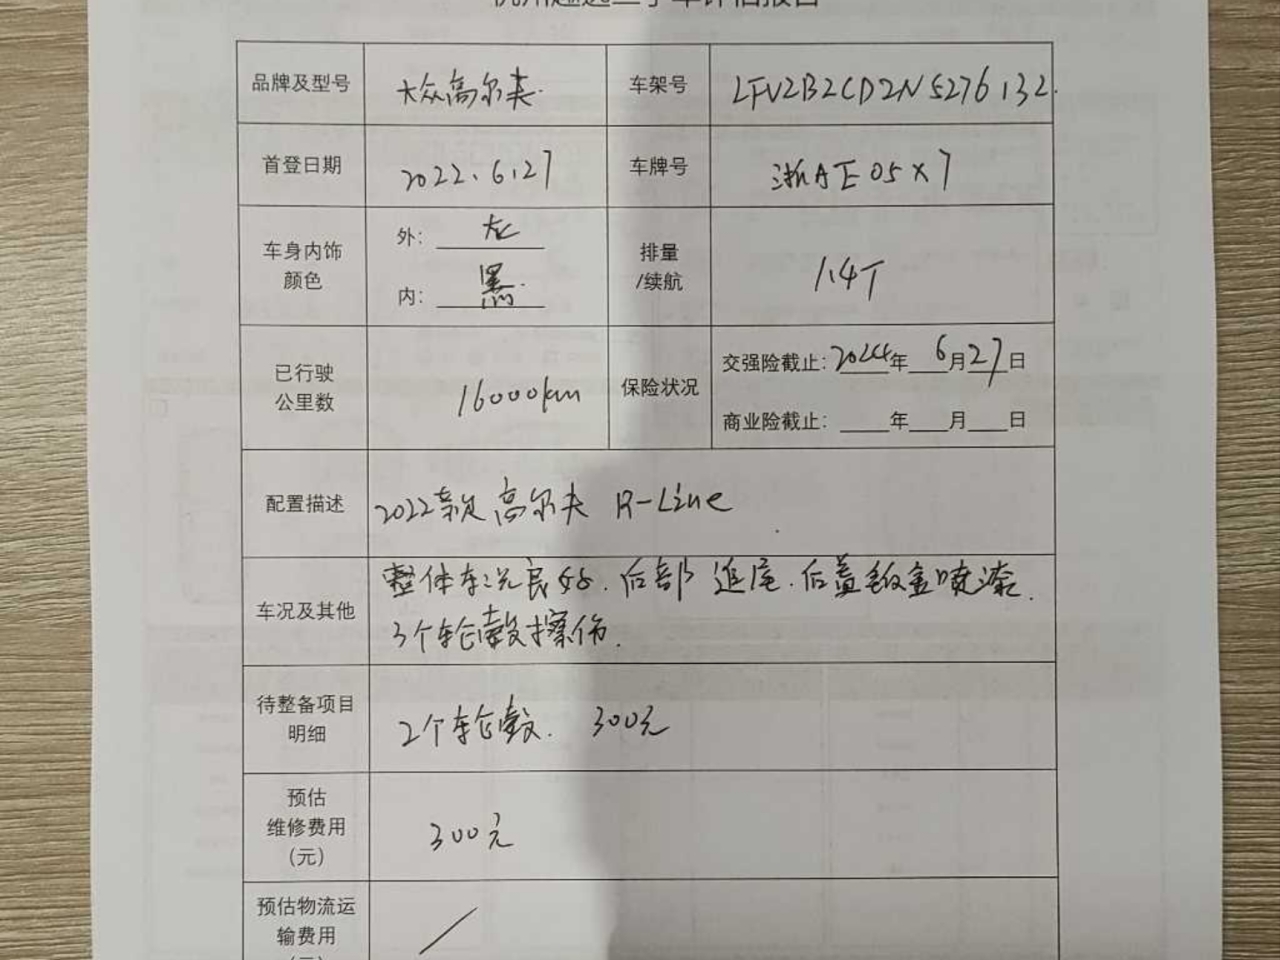 品牌及型号 大众高尔夫. 车架号 LFV2B2CD2N5276132.
首登日期 2022.6.27 车牌号 浙AE05X7
车身内饰
颜色
外: 灰
内: 黑
排量
/续航
1.4T
已行驶
公里数
16000km
保险状况
交强险截止: 2024年 6月27日
商业险截止: ____年____月____日
配置描述 2022款高尔夫 R-Line
车况及其他
整体车况良好. 后部追尾. 后盖钣金喷漆.
3个轮毂擦伤.
待整备项目
明细
2个轮毂. 300元
预估
维修费用
(元)
300元
预估物流运
输费用